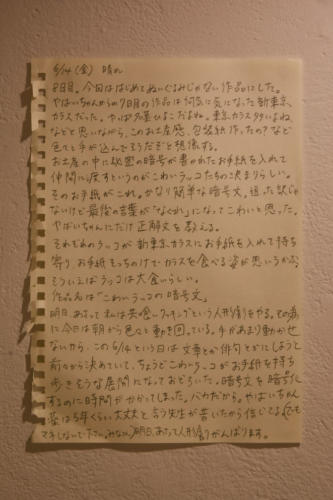 6/14(金) 晴れ
8日目。今回ははじめてぬいぐるみじゃない作品にした。
やばいちゃんからの7日目の作品は何気に気になった新東京
カラスだった。やば
などと思いながら、このお土産感、包装紙作ったの?など
色々と手が込んでそうだぞと想像する。
お土産の中に秘密の暗号が書かれたお手紙を入れて
仲間に渡すというのがこわいラッコたちの決まりらしい。
そのお手紙がこれ。かなり簡単な暗号文。迷った訳じゃ
ないけど最後の言葉が「なぐれ」になってこわいと思った。
やばいちゃんにだけ正解文を教える。
それぞれのラッコが新東京カラスにお手紙を入れて持ち
寄り、お手紙そっちのけでカラスを食べる姿が思いうかぶ。
そういえばラッコは大食いらしい。
作品名は「こわいラッコの暗号文」
明日、あさって私は
に今日は朝から色々と動き回っている。手があまり動かせ
ないから、この6/14という日は文章とか俳句とかにしようと
前々から決めていて、ちょうどこわいラッコがお手紙を持ち
歩きそうな展開になっておどろいた。暗号文を暗号化
するのに時間がかかってしまった。バカだから。やばいちゃん
薬は5年くらい大丈夫と言う先生が昔いたから信じてる(でも
マネしないで下さい。みなさん)明日、あさって人形劇がんばります。